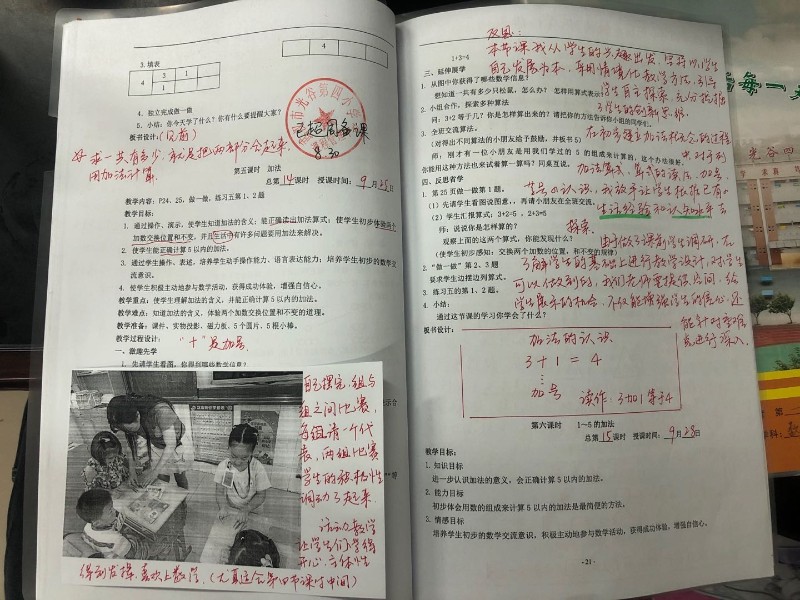 3. 填表
4 3 1
4 1
4
4. 独立完成做一做
5. 小结：你今天学了什么？你有什么要提醒大家？
板书设计：(见前)
市光谷第四小学
已超周备课
8.30
求一共有多少，就是把两部分合起来，
用加法计算.
第五课时 加法
总第14课时 授课时间：9月25日
教学内容：P24、25，做一做，练习五第1、2题
教学目标：
1. 通过操作、演示，使学生知道加法的含义；能正确读出加法算式；使学生初步体验两个
加数交换位置和不变，并且生活中有许多问题要用加法来解决。
2. 使学生能正确计算5以内的加法。
3. 通过学生操作、表述，培养学生动手操作能力、语言表达能力；培养学生初步的数学交
流意识。
4. 使学生积极主动地参与数学活动，获得成功体验，增强自信心。
教学重点：使学生理解加法的含义，并能正确计算5以内的加法。
教学难点：知道加法的含义，体验两个加数交换位置和不变的道理。
教学准备：课件、实物投影、磁力板、5个圆片、5根小棒。
教学过程设计： “十”是加号.
一、激趣先学
1. 先请学生看图，你得到哪些数学信息？
自己探究，组与
组之间比赛，
每组请一个代
表，两组比赛
学生的积极性
调动了起来.
让学生们学得
开心，主体性
得到发挥，喜欢上数学.
1+3=4
反思：
本节课我从学生的兴趣出发，坚持以学生
自己发展为本，采用情境化教学方法，引导
学生自主探索，充分挖掘
了学生的创新思维.
三、延伸展学
1. 从图中你获得了哪些数学信息？
想知道一共有多少只松鼠，怎么办？ 怎样用算式表示
2. 小组合作，探索多种算法
问：3+2等于几？你是怎样算出来的？请把你的方法告诉你小组的同学们。
3. 全班交流算法。
（对得出不同算法的小朋友给予鼓励，并板书5）
师：刚才有一位小朋友是用我们学过的5的组成来计算的，这个办法很好，
你能用这种方法也来试着算一算吗？同桌互说。
在初步建立加法概念的过程中
加法算式，算式的读法，加号
等号的认识，我放手让学生根据已有
生活经验和认知水平去
探索.
四、反思省学
1. 第25页做一做第1题。
（1）先请学生看图说图意，再请小朋友在全班交流。
（2）学生汇报算式：3+2=5，2+3=5
师：说说你是怎样算的？
观察上面的这两个算式，你能发现什么？
（使学生初步感知：交换两个加数的位置，和不变的规律）
由于做了课前学生调研，在
了解学生的基础上进行教学设计，对学生
可以做到的，我们老师要提供空间，给
学生展示的机会，不仅能增强学生的信心，还
能针对重难
点进行深入.
2. “做一做”第2、3题
要求学生边摆边列算式。
3. 练习五的第1、2题。
4. 小结：
通过这节课的学习你学会了什么？
板书设计：
加法的认识
3+1=4
⋮
加号 读作：3加1等于4
第六课时 1～5的加法
总第15课时 授课时间：9月28日
教学目标：
1. 知识目标
进一步认识加法的意义，会正确计算5以内的加法。
2. 能力目标
初步体会用数的组成来计算5以内的加法是最简便的方法。
3. 情感目标
培养学生初步的数学交流意识，积极主动地参与数学活动，获得成功体验，增强自信心。
- 21 -